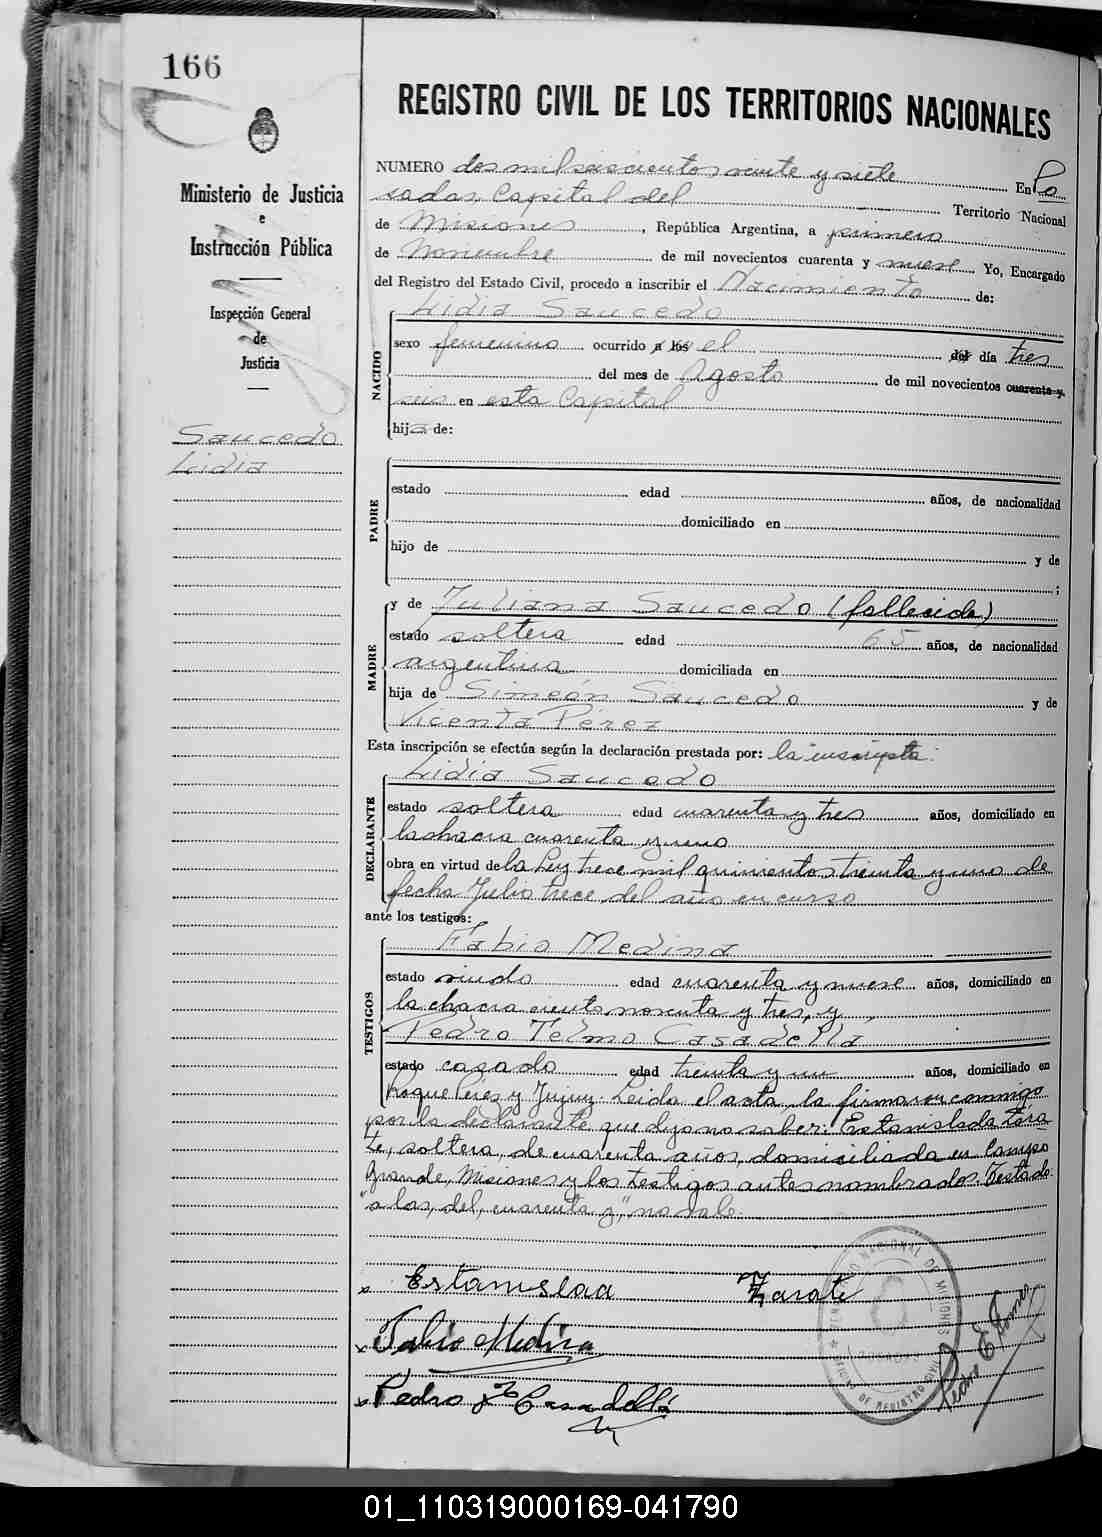 166
REGISTRO CIVIL DE LOS TERRITORIOS NACIONALES
Ministerio de Justicia
e
Instrucción Pública
Inspección General
de
Justicia
Saucedo
Lidia
NUMERO dos mil seiscientos veinte y siete En Po
sadas Capital del Territorio Nacional
de Misiones, República Argentina, a primero
de Noviembre de mil novecientos cuarenta y nueve Yo, Encargado
del Registro del Estado Civil, procedo a inscribir el Nacimiento de:
NACIDO
Lidia Saucedo
sexo femenino ocurrido a los el del día tres
del mes de Agosto de mil novecientos cuarenta y
seis en esta Capital
hija de:
PADRE
estado edad años, de nacionalidad
domiciliado en
hijo de y de
;
MADRE
y de Juliana Saucedo (fallecida)
estado soltera edad 65 años, de nacionalidad
argentina domiciliada en
hija de Simeón Saucedo y de
Vicenta Pérez
Esta inscripción se efectúa según la declaración prestada por: la inscripta
DECLARANTE
Lidia Saucedo
estado soltera edad cuarenta y tres años, domiciliado en
la chacra cuarenta y uno
obra en virtud de la Ley trece mil quinientos treinta y uno de
fecha Julio trece del año en curso
ante los testigos:
TESTIGOS
Fabio Medina
estado viudo edad cuarenta y nueve años, domiciliado en
la chacra ciento noventa y tres, y
Pedro Telmo Casadella
estado casado edad treinta y un años, domiciliado en
Roque Pérez y Jujuy. Leida el acta, la firmaron conmigo
por la declarante que dijo no saber: Estanislada Zára-
te, soltera, de cuarenta años, domiciliada en Campo
Grande, Misiones y los testigos antes nombrados. Testado:
"a los, del, cuarenta y," no vale.
x Estanislaa Zarate
x Fabio Medina
x Pedro To Casadellá
Pedro E.
TERRITORIO NACIONAL DE MISIONES
OFICINA DE REGISTRO CIVIL
POSADAS
01_110319000169-041790